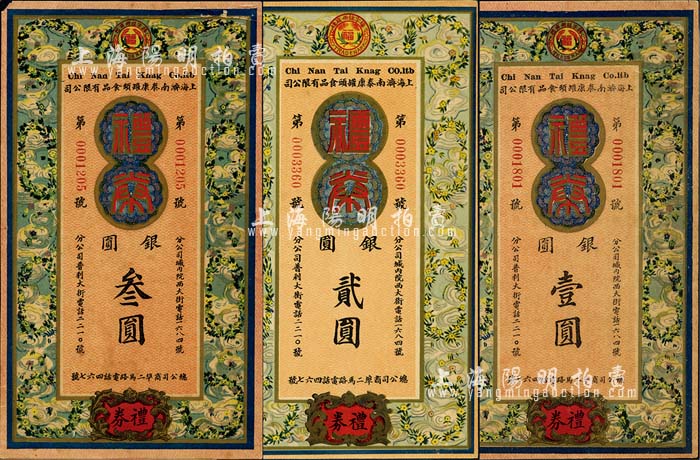 Chi Nan Tai Knag Co.ltb
上海濟南泰康罐頭食品有限公司
禮券
第 0001205 號
第 0001205 號
銀圓
叁圓
分公司城內院西大街電話一六八四號
分公司普利大街電話二二一〇號
總公司商埠二馬路電話四六七號
禮券
Chi Nan Tai Knag CO.ltb
上海濟南泰康罐頭食品有限公司
禮券
第 0003360 號
第 0003360 號
銀圓
貳圓
分公司城內院西大街電話一六八四號
分公司普利大街電話二二一〇號
總公司商埠二馬路電話四六七號
禮券
Chi Nan Tai Knag Co.ltb
上海濟南泰康罐頭食品有限公司
禮券
第 0001801 號
第 0001801 號
銀圓
壹圓
分公司城內院西大街電話一六八四號
分公司普利大街電話二二一〇號
總公司商埠二馬路電話四六七號
禮券
上海陽明拍賣
www.yangmingauction.com